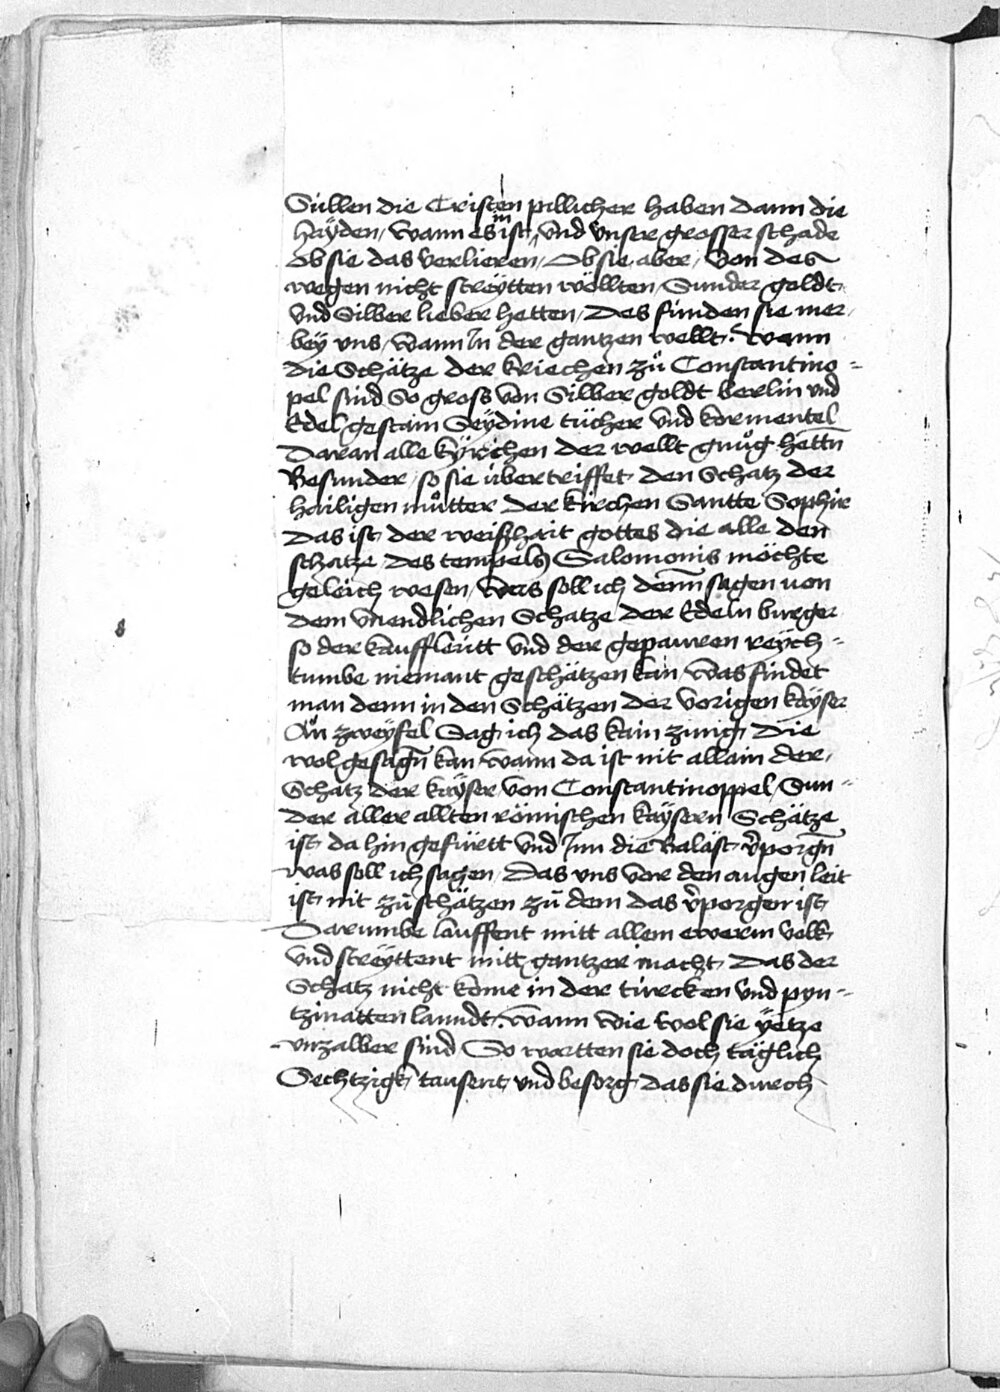 Süllen die Cristen pillicher haben dann die
hayden / wann es im ist / Vnd vnser grosser schade
Ob sie das verlieren / Ob sie aber / Von des
wegen nicht streÿtten wöllten / Sunder goldt
Vnd Silber lieber hetten / Des funden sie mer
bey vns / Wann In der gantzen wellt. Wann
die Schätze der kriechen zů Constantino =
pel sind So gross von Silber goldt berlin vnd
Edel gestain Seÿdine tücher Vnd kormentel
Daran alle kÿrichen der wellt gnůg hettn̄
Besunder / so sie übertriffet den Schatz der
hailigen můtter der kirchen Santte Sophie
Das ist der weißhait gottes die alle den
schatze des tempels Salomonis möchte
geleich wesen / Was soll ich denn̄ sagen von
dem vnendlichen Schatze der Edeln burger
so der kauffleütt Vnd der gepawren reÿch =
tumbe niemant geschätzen kan / Was findet
man denn in den Schätzen der Vorigen kaÿser
On̊ zweÿfel Sag ich das kain zung Die
wol gesagn̄ kan / Wann da ist nit allain der
Schatz der kaÿser Von Constantinoppel / Sun =
der aller allten römischen kaÿsern Schätze
ist da hin gefürtt Vnd Inn die Baläst v̄porgn̄
was soll ich sagen / Das vns vor den augen leit
ist nit zů schätzen zů dem das v̄porgen ist
Darumbe lauffent mitt allem ewerm Volk
Vnd streÿttent mitt gantzer macht Das der
Schatz nicht kome in der türcken Vnd pyn =
tzinatten lanndt. Wann wie wol sie ÿetze
vnzalber sind So wartten sie doch täglich
Sechtzigk tausent vnd besorg das sie durch